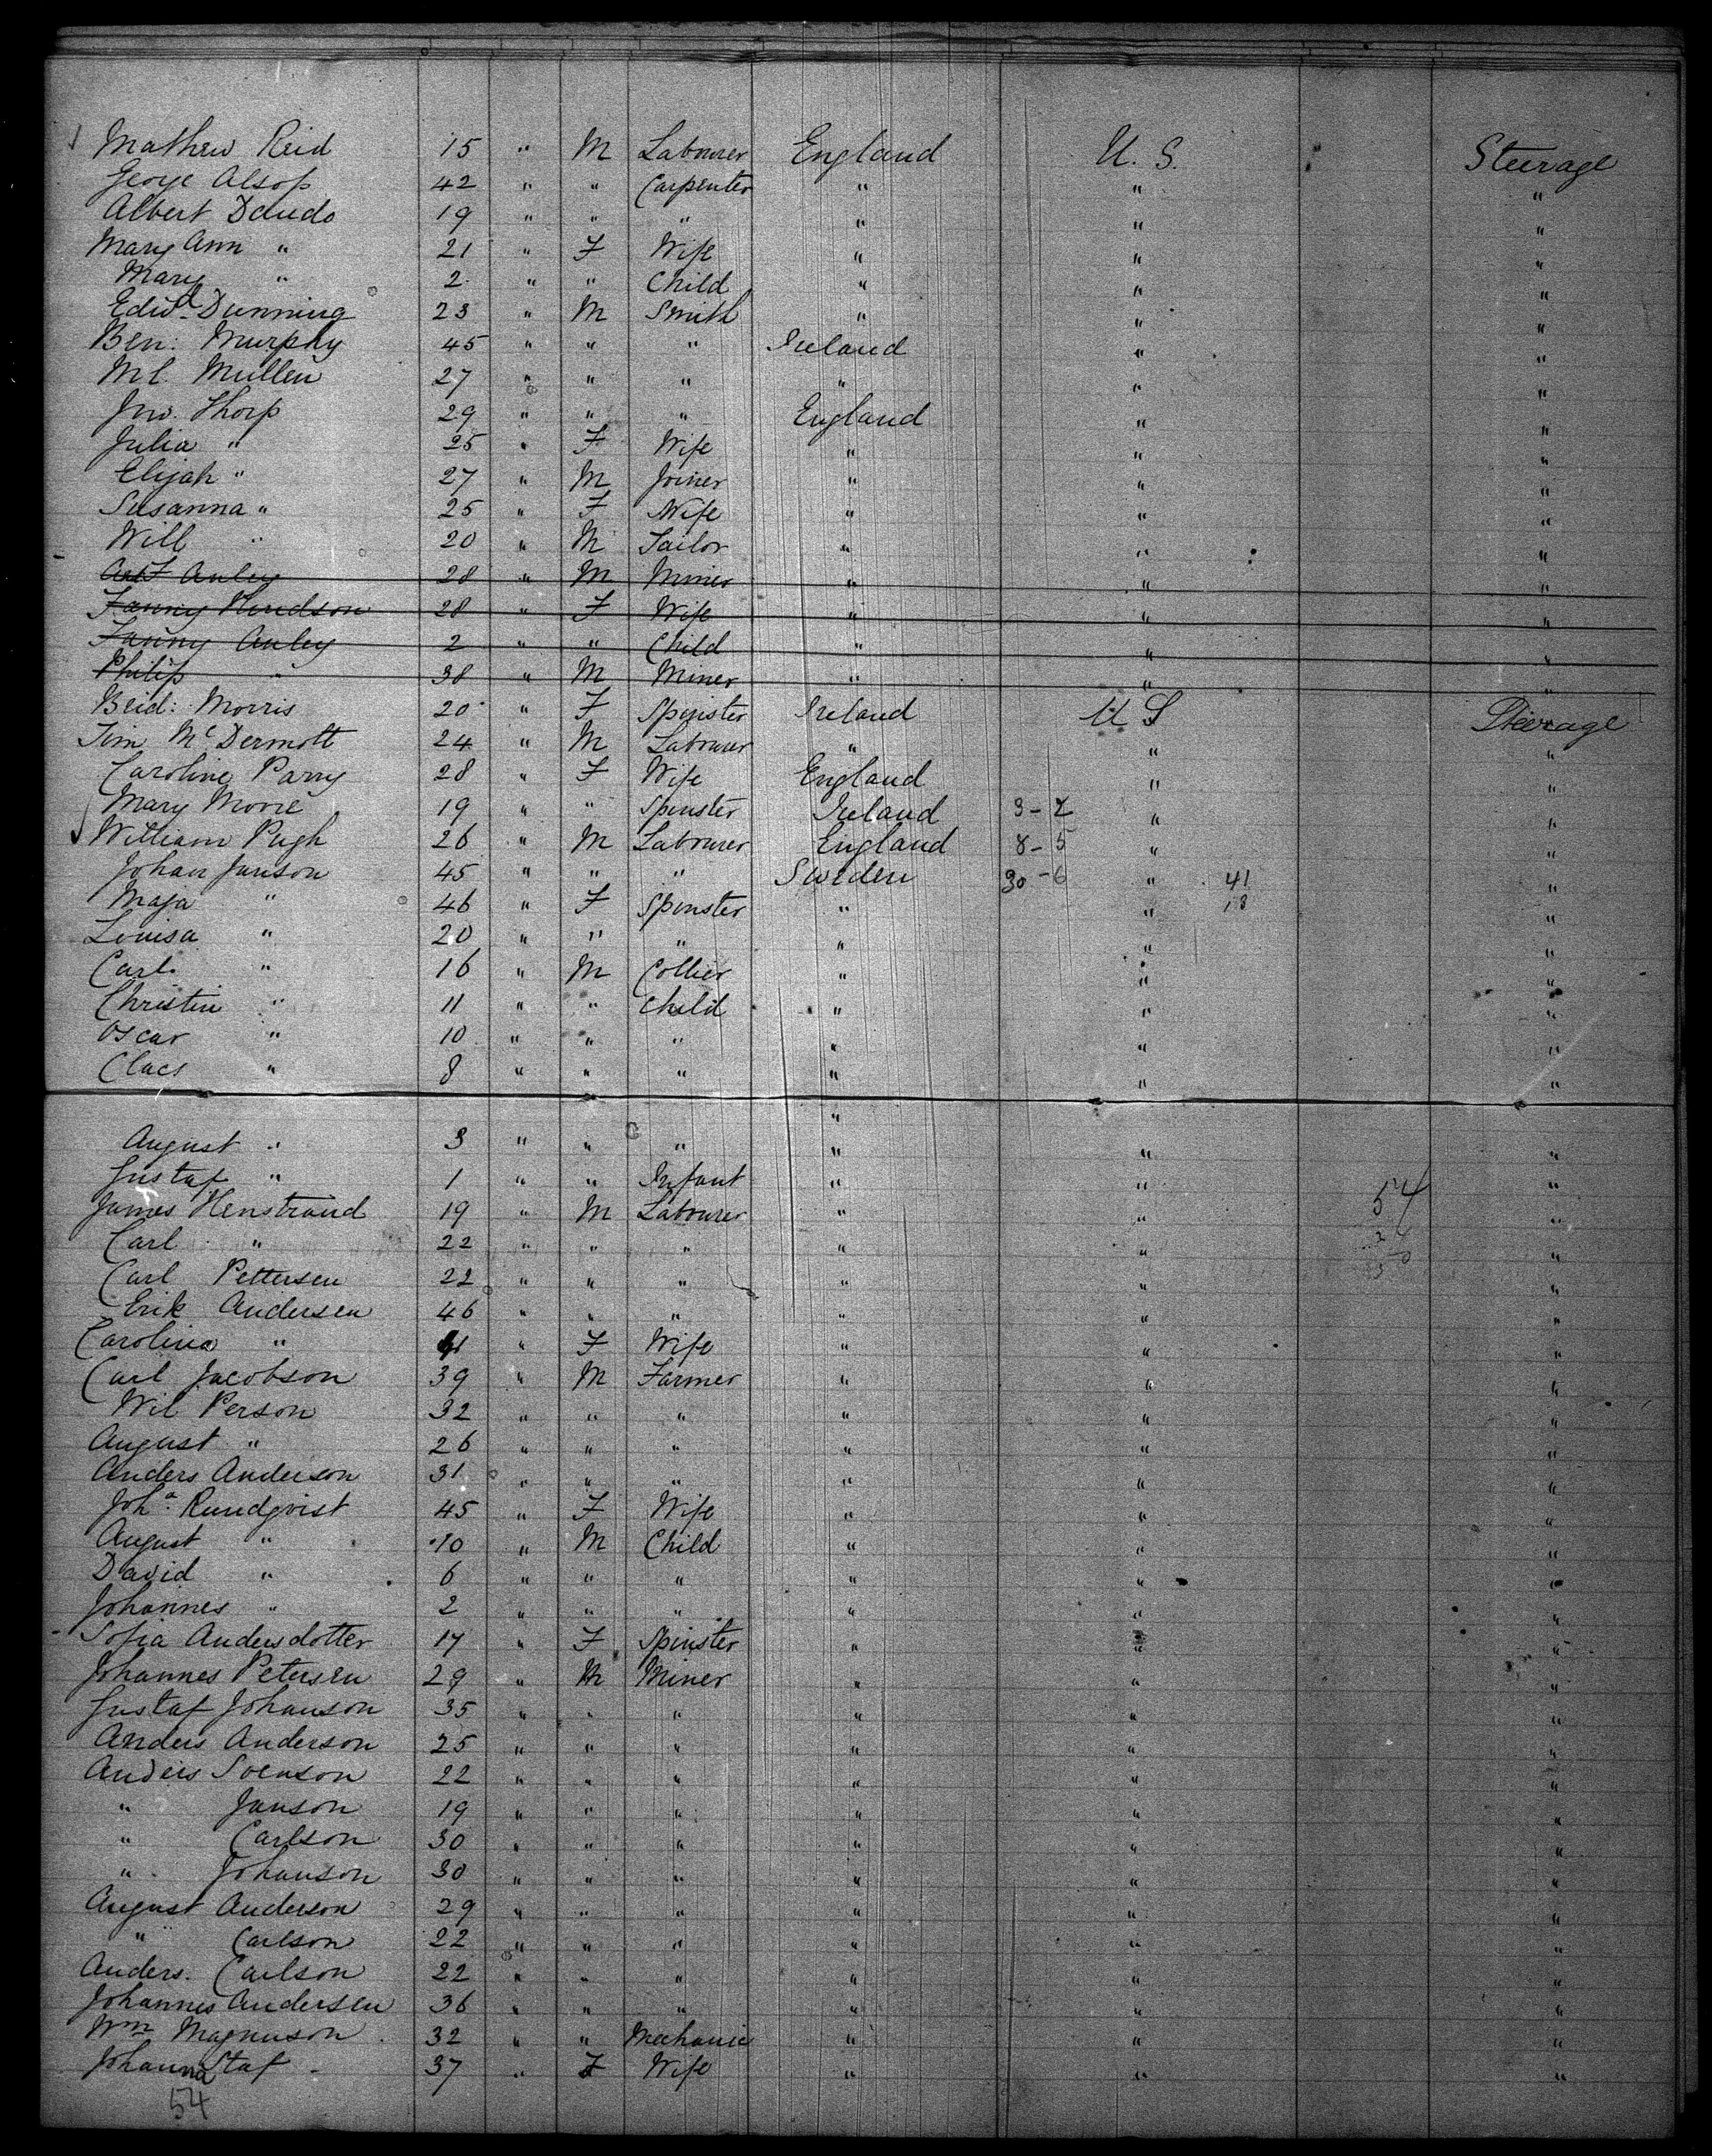 Mathew Reid 15 " M Labourer England U. S. Steerage
George Alsop 42 " " Carpenter " " "
Albert 19 " " " " " "
Mary Ann " 21 " F Wife " " "
Mary " 2 " " Child " " "
Edwd Dunning 23 " M Smith " " "
Ben: Murphy 45 " " " Ireland " "
Ml. Mullen 27 " " " " " "
Jno. Thorp 29 " " " England " "
Julia " 25 " F Wife " " "
Elijah " 27 " M Joiner " " "
Susanna " 25 " F Wife " " "
Will " 20 " M Tailor " " "
Anley 28 " M Miner " " "
Fanny Hudson 28 " F Wife " " "
Fanny Anley 2 " " Child " " "
Philip " 38 " M Miner " " "
Brid: Morris 20 " F Spinster Ireland U S Steerage
Jim McDermott 24 " M Labourer " " "
Caroline Parry 28 " F Wife England " "
Mary Moore 19 " " Spinster Ireland 3-2 " "
William Pugh 26 " M Labourer England 8-5 " "
Johan Janson 45 " " " Sweden 30-6 " 41 "
Maja " 46 " F Spinster " " 13 "
Louisa " 20 " " " " " "
Carl " 16 " M Collier " " "
Christin " 11 " " Child " " "
Oscar " 10 " " " " " "
Claes " 8 " " " " " "
"
August " 3 " " " " " "
Gustaf " 1 " " Infant " " "
James Henstrand 19 " M Labourer " " 54 "
Carl " 22 " " " " " "
Carl Pettersen 22 " " " " " "
Erik Andersen 46 " " " " " "
Carolina " 41 " F Wife " " "
Carl Jacobson 39 " M Farmer " " "
Wil Person 32 " " " " " "
August " 26 " " " " " "
Anders Anderson 31 " " " " " "
Joha Rundqvist 45 " F Wife " " "
August " 10 " M Child " " "
David " 6 " " " " " "
Johannes " 2 " " " " " "
Sofia Andersdotter 17 " F Spinster " " "
Johannes Petersen 29 " M Miner " " "
Gustaf Johanson 35 " " " " " "
Anders Anderson 25 " " " " " "
Anders Svenson 22 " " " " " "
" Janson 19 " " " " " "
" Carlson 30 " " " " " "
" Johanson 30 " " " " " "
August Anderson 29 " " " " " "
" Carlson 22 " " " " " "
Anders. Carlson 22 " " " " " "
Johannes Andersen 36 " " " " " "
Wm Magnuson 32 " " Mechanic " " "
Johanna Staf 37 " F Wife " " "
54